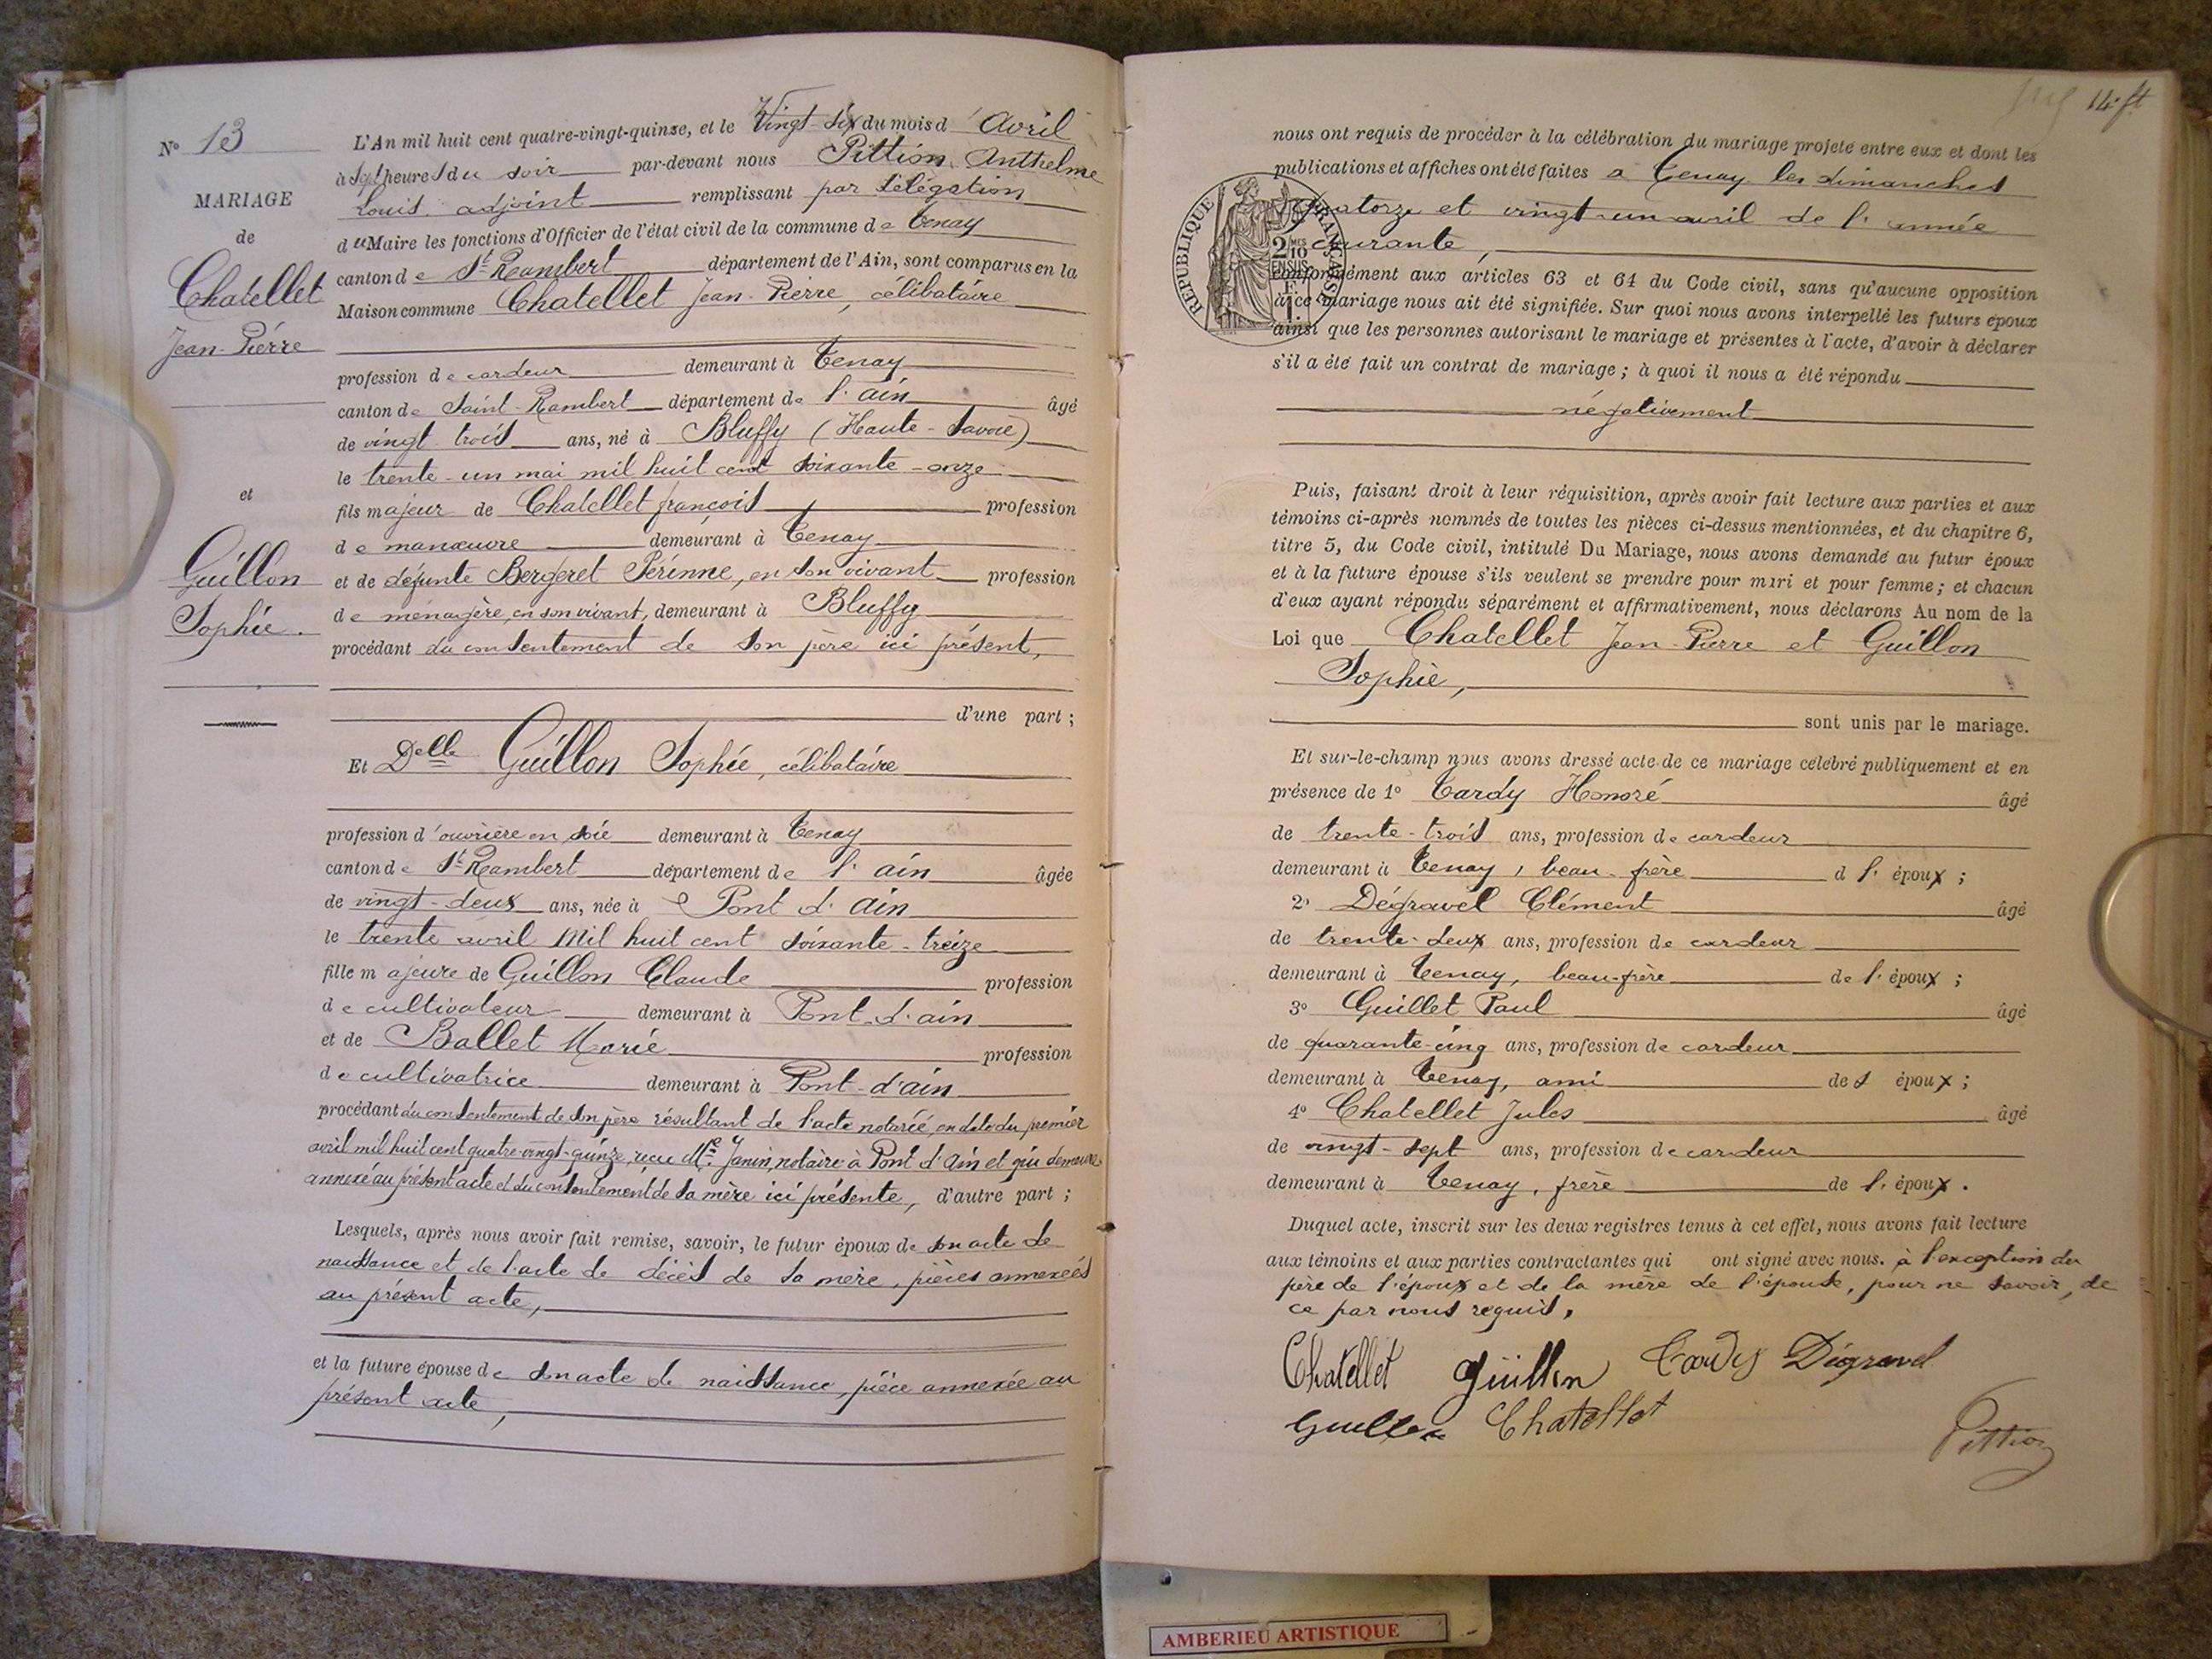 N° 13
MARIAGE
de
Chatellet
Jean-Pierre
et
Guillon
Sophie.
L'An mil huit cent quatre-vingt-quinze, et le Vingt-six du mois d'Avril
à sept heures du soir par-devant nous Pittion Anthelme
Louis adjoint remplissant par délégation
du Maire les fonctions d'Officier de l'état civil de la commune de Tenay
canton de St Rambert département de l'Ain, sont comparus en la
Maison commune Chatellet Jean-Pierre, célibataire
profession de cardeur demeurant à Tenay
canton de Saint-Rambert département de l'ain âgé
de vingt trois ans, né à Bluffy (Haute-Savoie)
le trente-un mai mil huit cent soixante-onze
fils majeur de Chatellet françois profession
de manœuvre demeurant à Tenay
et de défunte Bergeret Périnne, en son vivant profession
de ménagère, en son vivant, demeurant à Bluffy
procédant du consentement de son père ici présent,
d'une part ;
Et Delle Guillon Sophie, célibataire
profession d'ouvrière en soie demeurant à Tenay
canton de St Rambert département de l'ain âgée
de vingt-deux ans, née à Pont d'ain
le trente avril mil huit cent soixante-treize
fille majeure de Guillon Claude profession
de cultivateur demeurant à Pont-d'ain
et de Ballet Marie profession
de cultivatrice demeurant à Pont-d'ain
procédant du consentement de son père résultant de l'acte notarié, en date du premier
avril mil huit cent quatre-vingt-quinze, reçu Me Janin, notaire à Pont d'Ain et qui demeure
annexé au présent acte et du consentement de sa mère ici présente, d'autre part ;
Lesquels, après nous avoir fait remise, savoir, le futur époux de son acte de
naissance et de l'acte de décès de sa mère, pièces annexées
au présent acte,
et la future épouse de son acte de naissance, pièce annexée au
présent acte,
14 ft
nous ont requis de procéder à la célébration du mariage projeté entre eux et dont les
publications et affiches ont été faites à Tenay les dimanches
quatorze et vingt-un avril de l'année
courante,
REPUBLIQUE FRANÇAISE
2 MES
10
EN SUS
conformément aux articles 63 et 64 du Code civil, sans qu'aucune opposition
à ce mariage nous ait été signifiée. Sur quoi nous avons interpellé les futurs époux
ainsi que les personnes autorisant le mariage et présentes à l'acte, d'avoir à déclarer
s'il a été fait un contrat de mariage ; à quoi il nous a été répondu
négativement
Puis, faisant droit à leur réquisition, après avoir fait lecture aux parties et aux
témoins ci-après nommés de toutes les pièces ci-dessus mentionnées, et du chapitre 6,
titre 5, du Code civil, intitulé Du Mariage, nous avons demandé au futur époux
et à la future épouse s'ils veulent se prendre pour mari et pour femme ; et chacun
d'eux ayant répondu séparément et affirmativement, nous déclarons Au nom de la
Loi que Chatellet Jean-Pierre et Guillon
Sophie,
sont unis par le mariage.
Et sur-le-champ nous avons dressé acte de ce mariage célébré publiquement et en
présence de 1° Tardy Honoré âgé
de trente-trois ans, profession de cardeur
demeurant à Tenay, beau-frère d l'époux ;
2° Dégravel Clément âgé
de trente-deux ans, profession de cardeur
demeurant à Tenay, beau-frère de l'époux ;
3° Guillet Paul âgé
de quarante-cinq ans, profession de cardeur
demeurant à Tenay, ami des époux ;
4° Chatellet Jules âgé
de vingt-sept ans, profession de cardeur
demeurant à Tenay, frère de l'époux.
Duquel acte, inscrit sur les deux registres tenus à cet effet, nous avons fait lecture
aux témoins et aux parties contractantes qui ont signé avec nous. à l'exception du
père de l'époux et de la mère de l'épouse, pour ne savoir, de
ce par nous requis.
Chatellet Guillon Tardy Dégravel
Guillet Chatellet
Pittion
AMBERIEU ARTISTIQUE